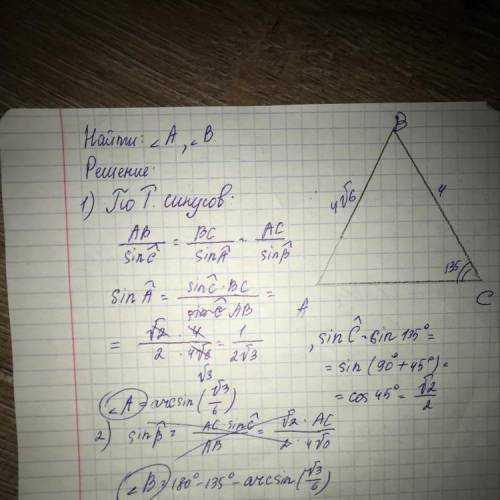 Найти: ∠A, ∠B.
Решение:
1) По Т. синусов.
AB/sinĈ = BC/sinÂ = AC/sinB̂
sinÂ = sinĈ·BC/AB =
= √2·4/2·4√6 = 1/2√3
√3
∠A = arcsin(√3/6)
2) sinB̂ = AC·sinĈ/AB = √2·AC/2·4√6
∠B = 180°-135°-arcsin(√3/6)
B
4√6
4
135
A
C
, sinĈ = sin 135° =
= sin(90°+45°) =
= cos 45° = √2/2